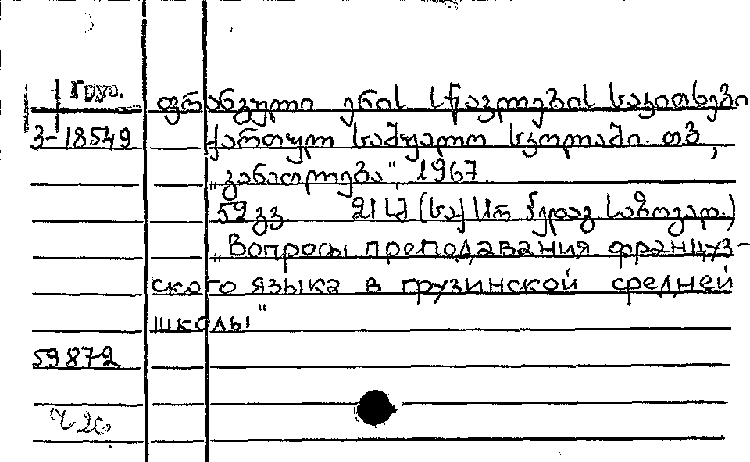 Груз.
ფრანგული ენის სწავლების საკითხები
3-18549 ქართულ საშუალო სკოლაში. თბ.,
„განათლება“, 1967
59 გვ. 21 სმ (საქ სსრ პედაგ საზოგად.)
„Вопросы преподавания француз-
ского языка в грузинской средней
школы“
59872